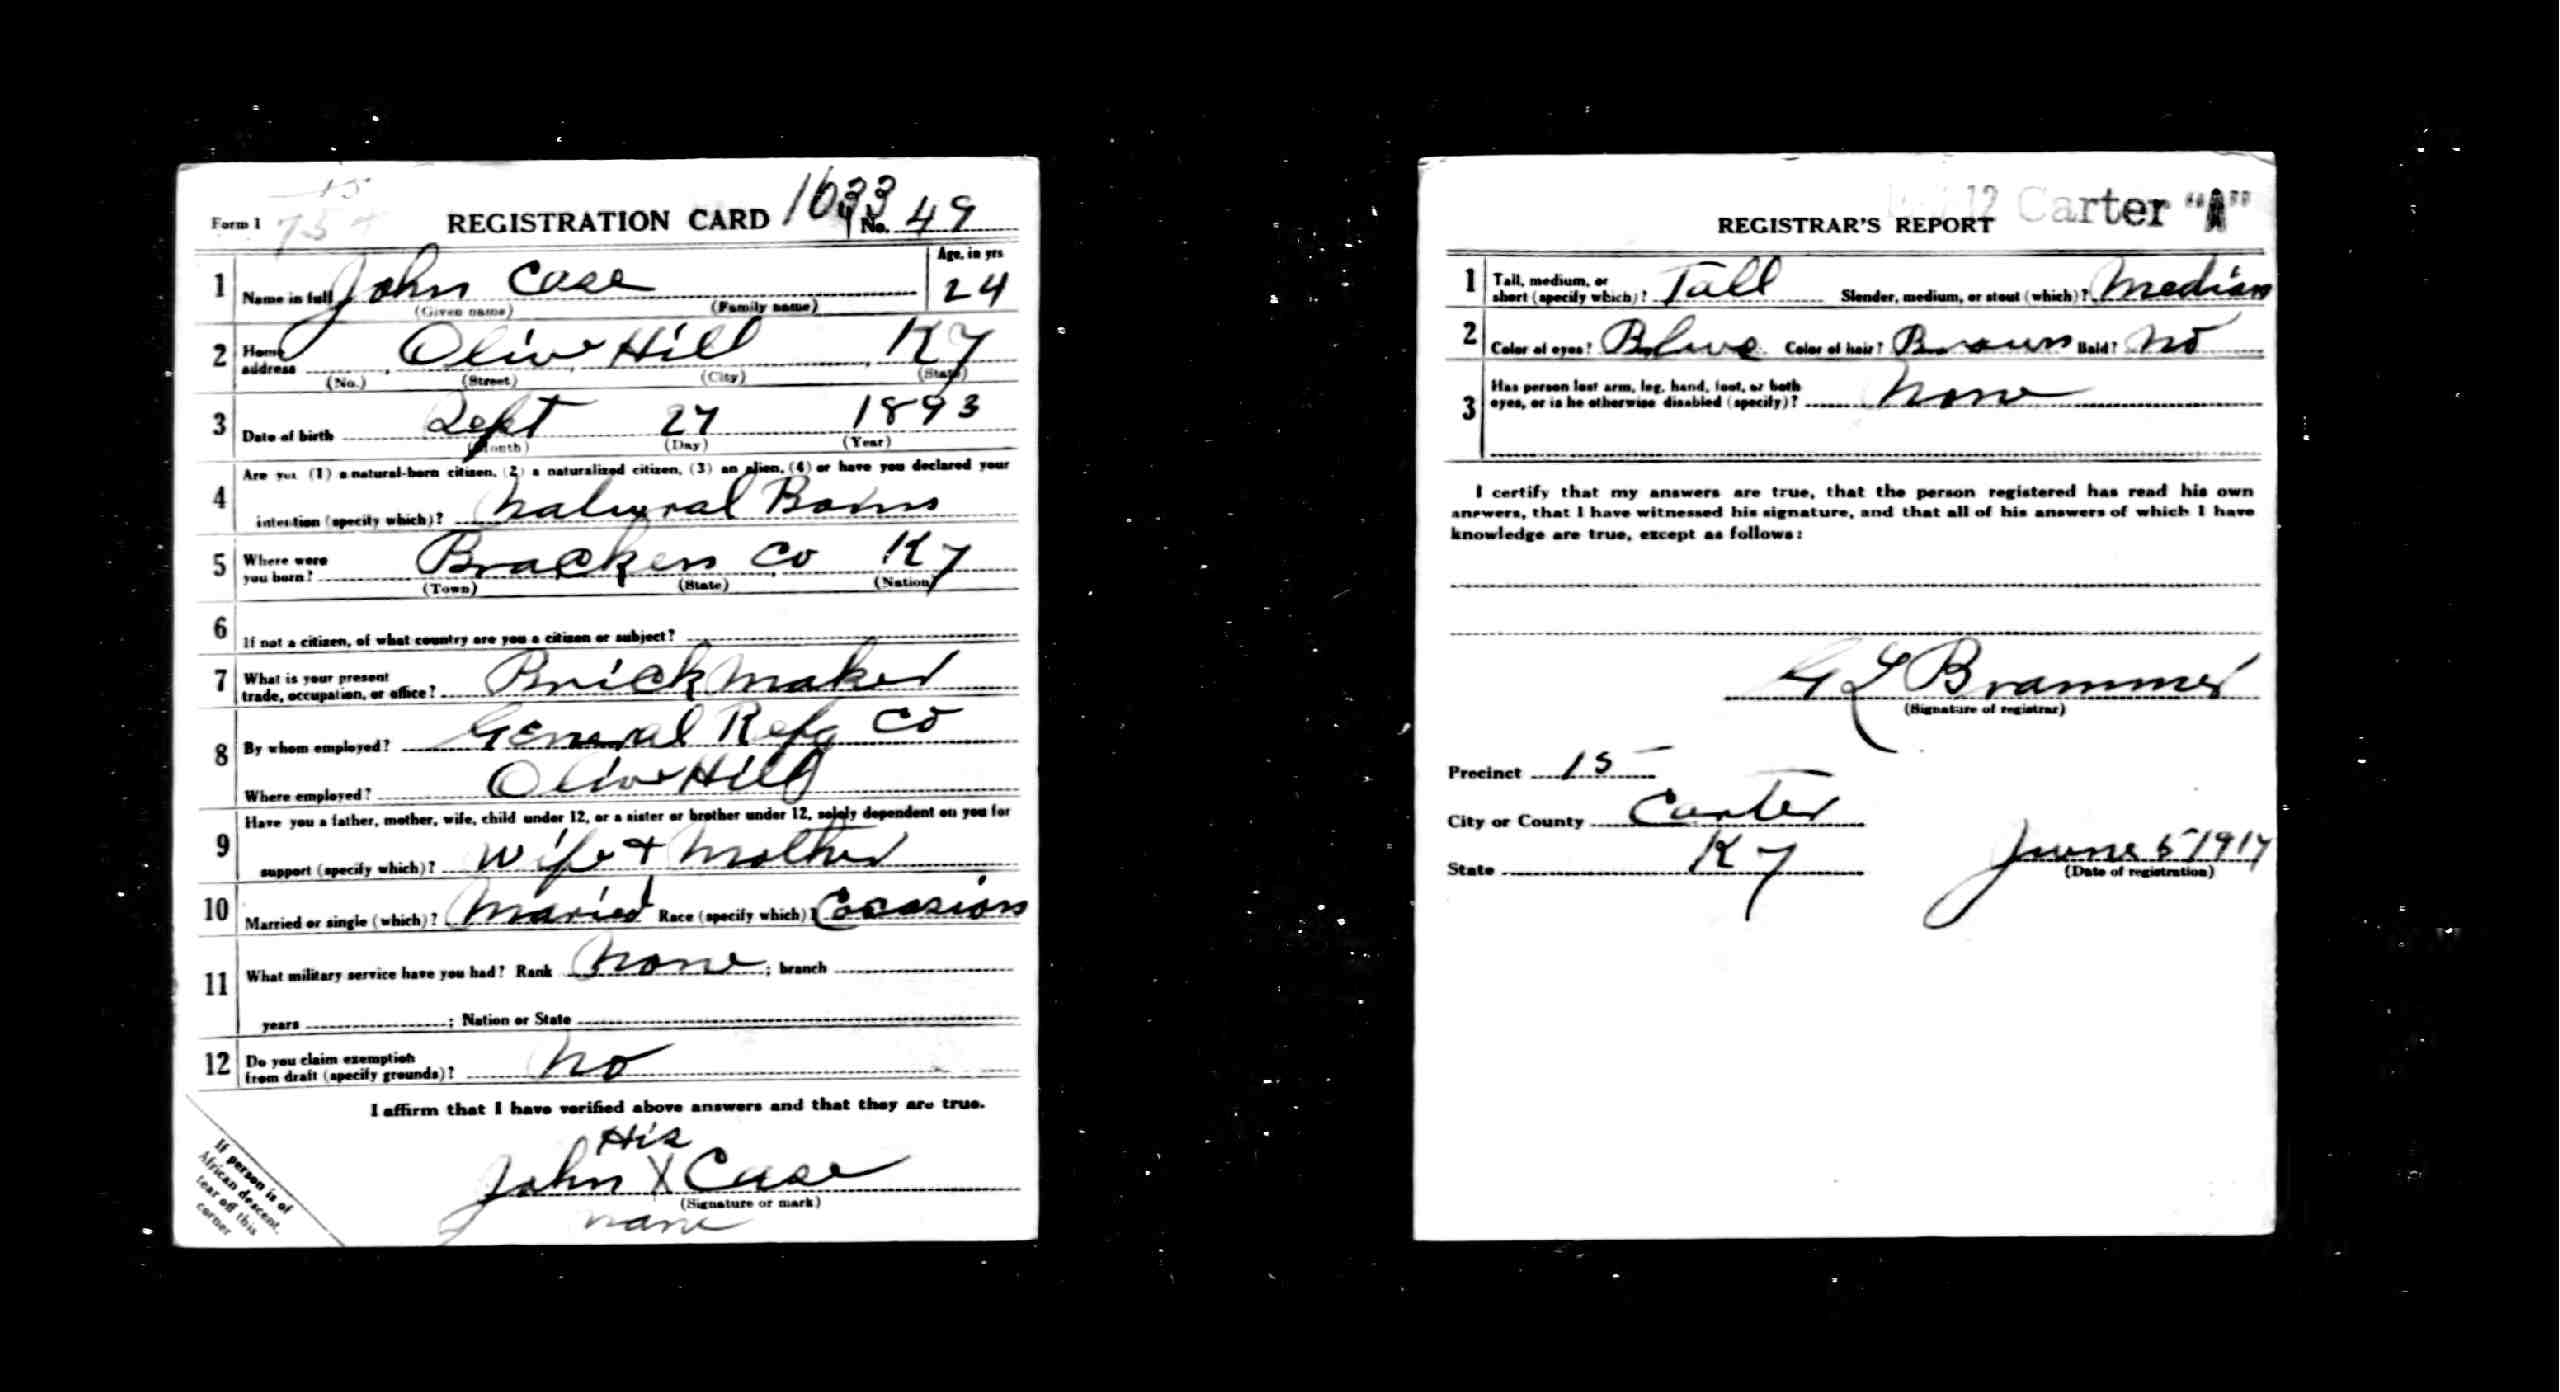 15
754
Form 1 REGISTRATION CARD 1633 No. 49
Age, in yrs
1 Name in full John Case 24
(Given name) (Family name)
2 Home address Olive Hill Ky
(No.) (Street) (City) (State)
3 Date of birth Sept 27 1893
(Month) (Day) (Year)
Are you (1) a natural-born citizen, (2) a naturalized citizen, (3) an alien, (4) or have you declared your
4 intention (specify which)? Natural Born
5 Where were you born? Bracken Co Ky
(Town) (State) (Nation)
6 If not a citizen, of what country are you a citizen or subject?
7 What is your present
trade, occupation, or office? Brick Maker
8 By whom employed? General Refg Co
Where employed? Olive Hill
Have you a father, mother, wife, child under 12, or a sister or brother under 12, solely dependent on you for
9 support (specify which)? Wife + Mother
10 Married or single (which)? Maried Race (specify which)? Cocasion
11 What military service have you had? Rank None ; branch
years ; Nation or State
12 Do you claim exemption
from draft (specify grounds)? No
I affirm that I have verified above answers and that they are true.
His
John X Case
(Signature or mark)
If person is of
African descent,
tear off this
corner
12 Carter "A"
REGISTRAR'S REPORT
1 Tall, medium, or
short (specify which)? Tall Slender, medium, or stout (which)? Medium
2 Color of eyes? Blue Color of hair? Brown Bald? No
3 Has person lost arm, leg, hand, foot, or both
eyes, or is he otherwise disabled (specify)? None
I certify that my answers are true, that the person registered has read his own
answers, that I have witnessed his signature, and that all of his answers of which I have
knowledge are true, except as follows:
G L Brammer
(Signature of registrar)
Precinct 15
City or County Carter
State Ky June 5 1917
(Date of registration)